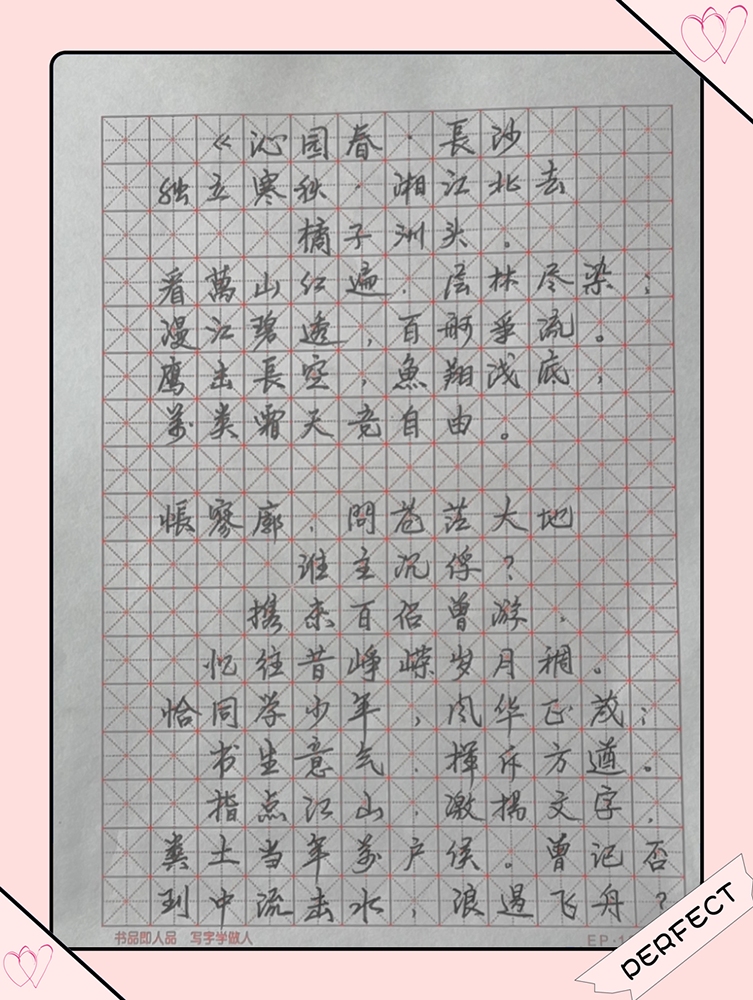 《沁园春·長沙
独立寒秋·湘江北去
橘子洲头。
看萬山红遍.层林尽染;
漫江碧透,百舸爭流。
鹰击長空,魚翔浅底,
萬类霜天竞自由。
悵寥廓.問苍茫大地
谁主沉俘?
携来百侣曾游.
忆往昔峥嵘岁月稠。
恰同学少年,风华正茂;
书生意气.挥斥方遒。
指点江山.激扬文字,
粪土当年萬户侯。曾记否
到中流击水,浪遏飞舟?
书品即人品 写字学做人
EP·1
PERFECT